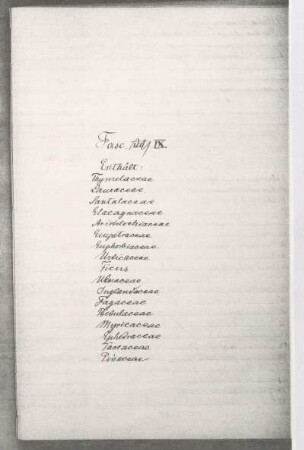 Fasc. IX.
Enthält:
Thymelaceae
Lauraceae
Santalaceae
Elaeagnaceae
Aristolochiaceae
Empetraceae
Euphorbiaceae
Urticaceae
Ficus
Ulmaceae
Juglandaceae
Fagaceae
Betulaceae
Myricaceae
Ephedraceae
Taxaceae
Pinaceae